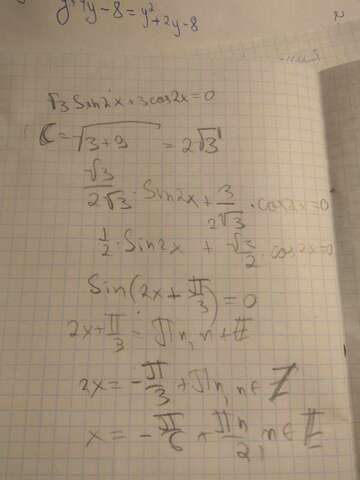 y²+4y-8=y²+2y-8
√3 Sin2x+3cos2x=0
C=√3+9 = 2√3
√3/2√3 · Sin2x + 3/2√3 · cos2x=0
1/2 · Sin2x + √3/2 · cos2x=0
Sin(2x+π/3)=0
2x+π/3=πn, n∈Z
2x=-π/3+πn, n∈Z
x=-π/6+πn/2, n∈Z